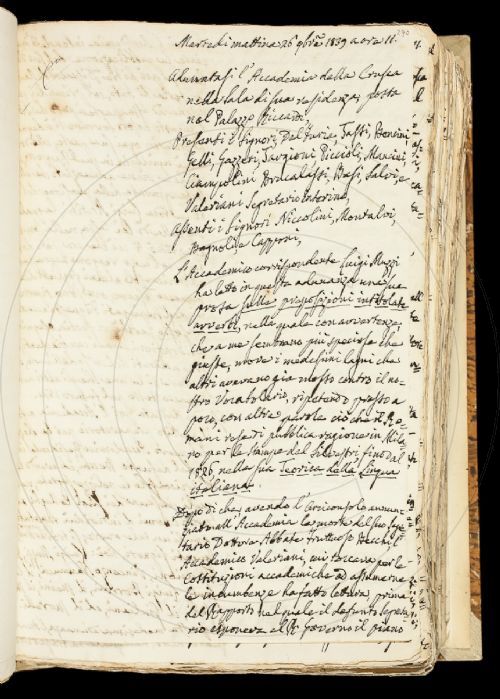 240
Martedì mattina 26 9bre 1839 a ore 11.
Adunatasi l'Accademia della Crusca
nella Sala di sua residenza, posta
nel Palazzo Riccardi,
Presenti i Signori, Del Furia, Tassi, Bencini
Gelli, Gazzeri, Targioni, Piccioli, Mancini
Ciampolini Brucalassi, Basi, Salvi, e
Valeriani Segretario Interino,
Assenti i Signori Niccolini, Montalvi,
Bagnoli, e Capponi,
L'Accademico corrispondente Luigi Muzzi
ha letto in questa adunanza una sua
prosa sulle preposizioni intitolate
avverbi, nella quale con avvertenze,
che a me sembrano più speciose che
giuste, move i medesimi lagni che
altri avevano già mosso contro il no=
stro Vocabolario, ripetendo presso a
poco, con altre parole ciò che il Ro=
mani rese di pubblica ragione in Mila=
no per le Stampe del Silvestri fino dal
1826 nella sua Teorica della Lingua
italiana.
Dopo di che, avendo l'Arciconsolo annun=
ziato all'Accademia la morte del suo Segre
tario Dottore Abbate Fruttuoso Becchi, l'
Accademico Valeriani, cui toccava per le
Costituzioni accademiche ad assumerne
le incumbenze ha fatto lettura prima
del Rapporto nel quale il defunto Segreta=
rio esponeva al R. Governo il piano